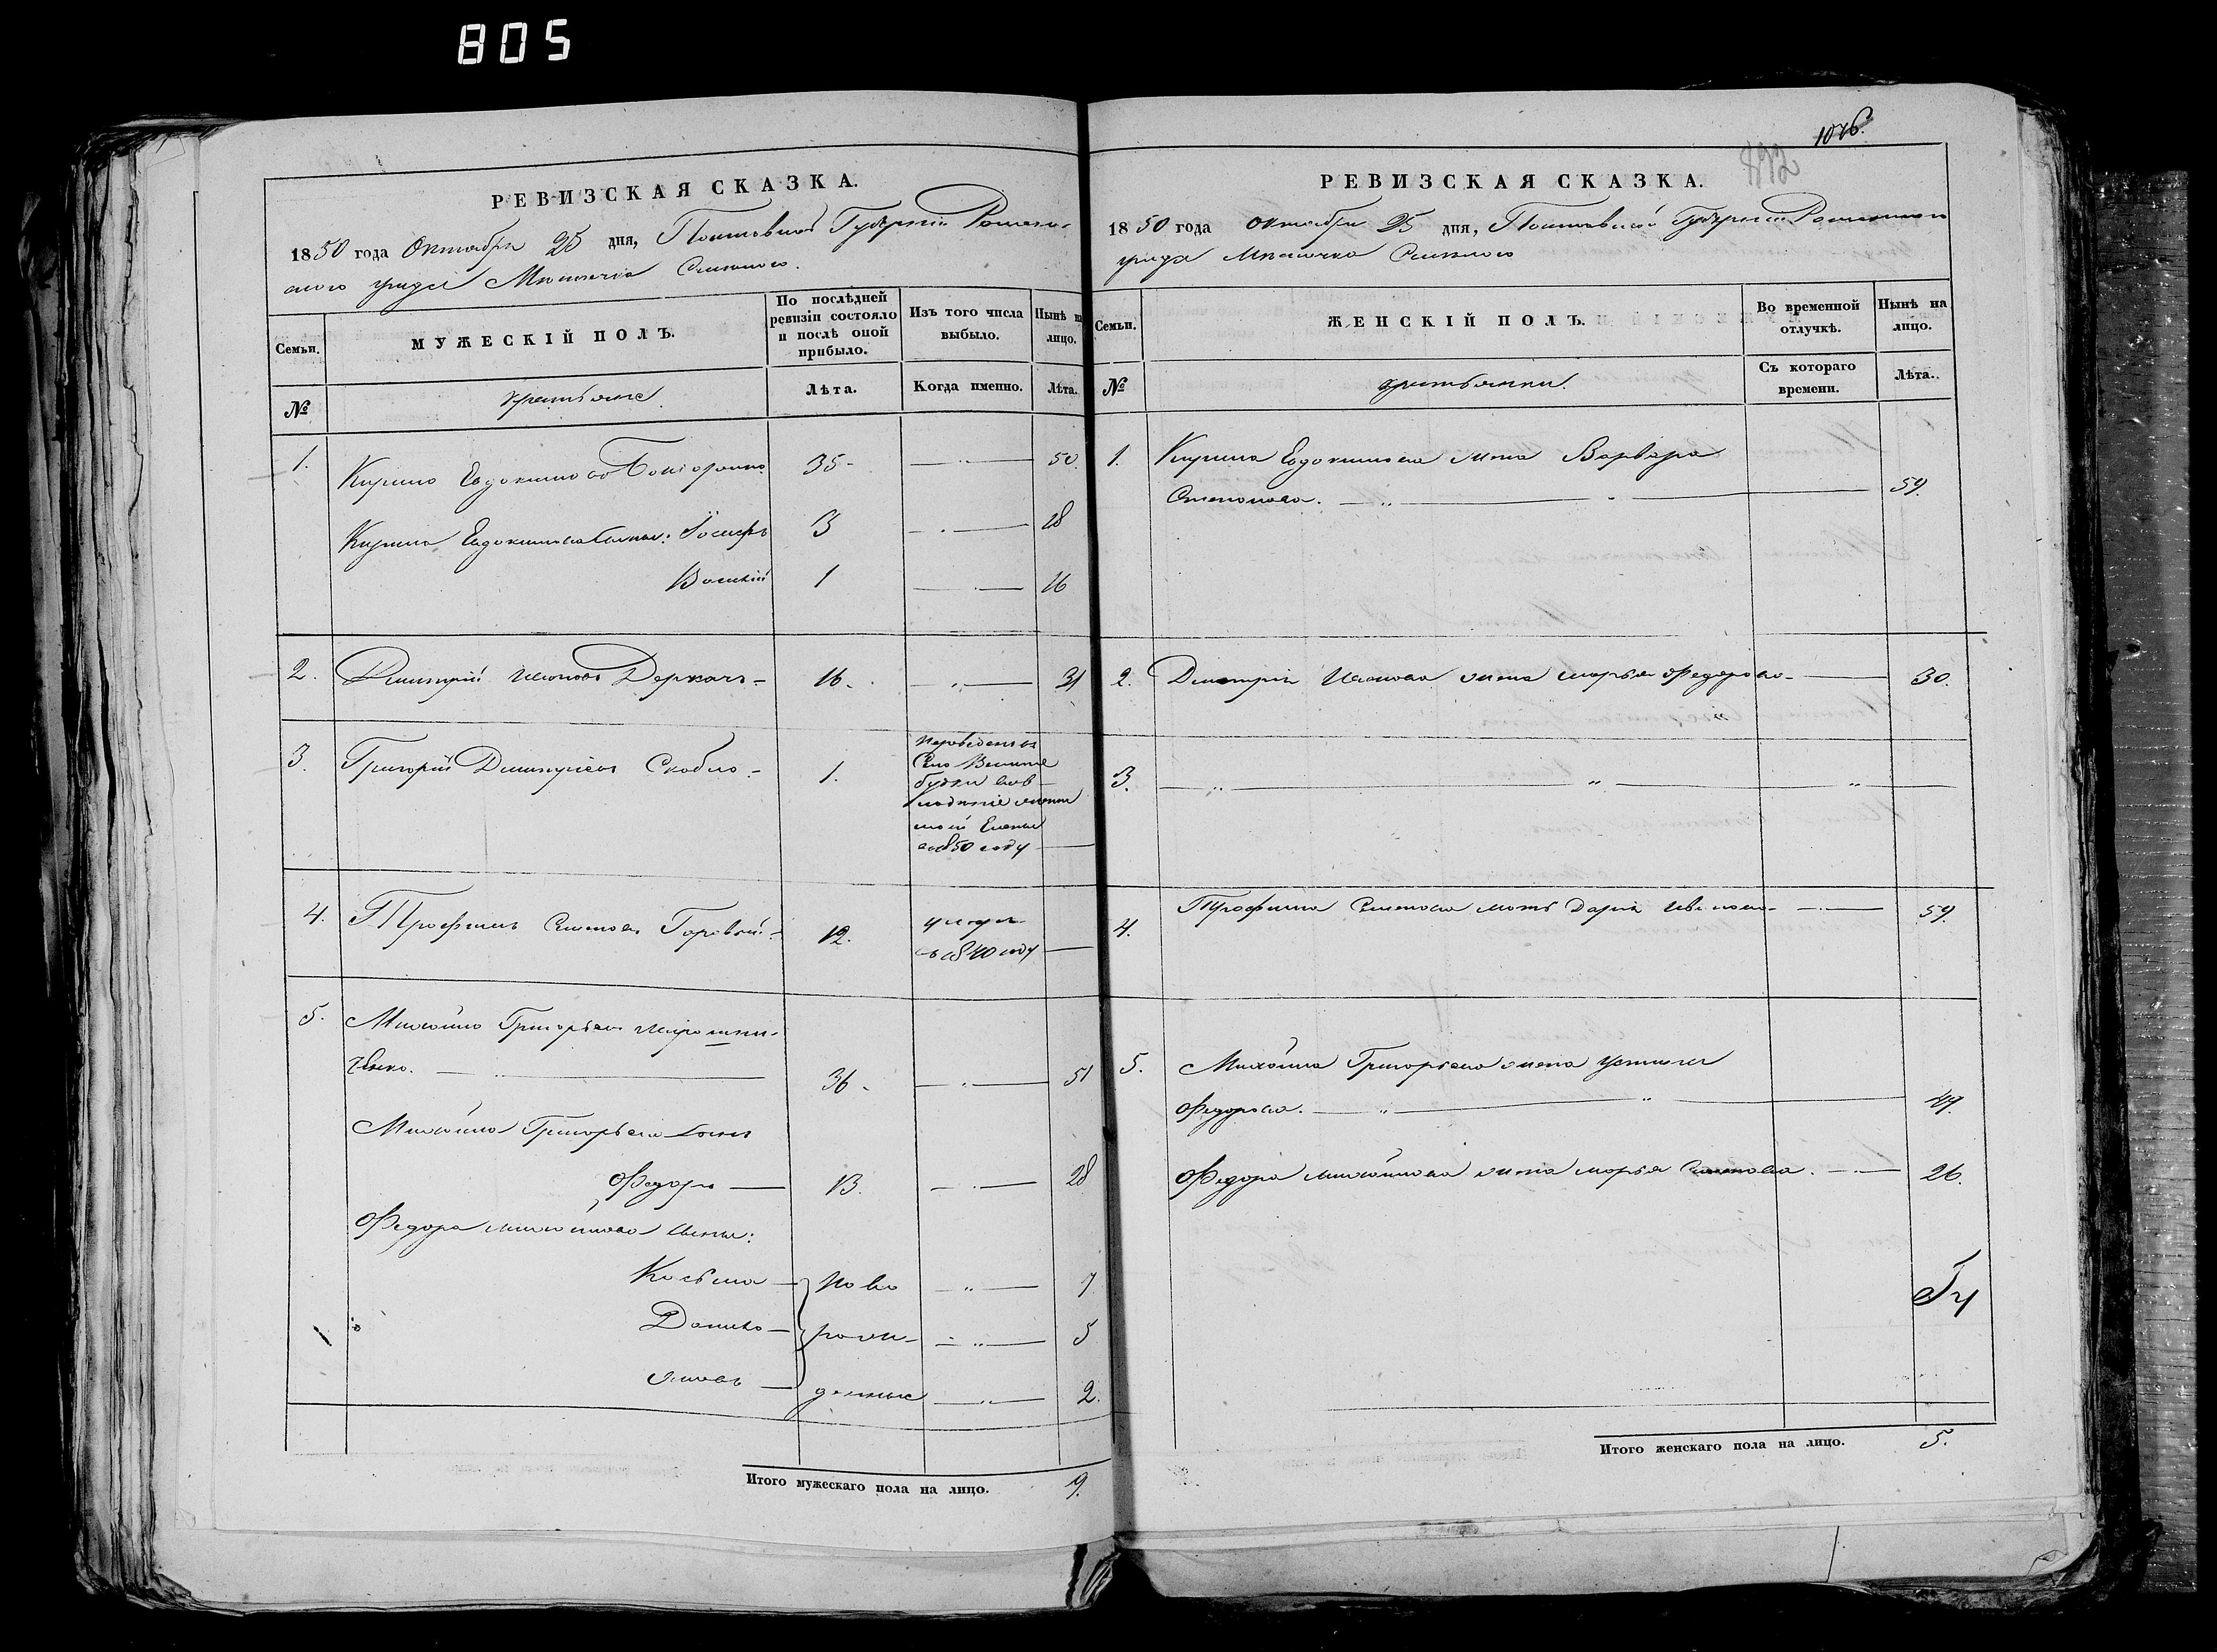 805
РЕВИЗСКАЯ СКАЗКА.
1850 года Октября 25 дня, Полтавской Губернiи Ромен-
скаго уѣзда Мѣстечка Смѣлого.
Семьи.
МУЖЕСКIЙ ПОЛЪ.
По послѣдней ревизiи состояло и послѣ оной прибыло.
Изъ того числа выбыло.
Нынѣ на лицо.
№
крестьяне
Лѣта.
Когда именно.
Лѣта.
1. Кирило Евдокимовъ 35 50.
Кирила Евдокимова сыновья: Iосифъ 13 28
Василiй 1 16
2. Дмитрiй Ивановъ Деркачъ 16. 31
3. Григорiй Дмитрiевъ Скобло. 1.
переведенъ въ
Село
1850 году
4. Трофимъ Семеновъ Горовый. 12.
умеръ
въ 1840 году
5. Михайло Григорьевъ Мирошни-
ченко. 36 51
Михайла Григорьева сынъ
Федоръ 13. 28
Федора Михайлова сыны:
Косьма ново 7
Данило рож- 5
Яковъ денные 2.
Итого мужескаго пола на лицо. 9.
1076.
892
РЕВИЗСКАЯ СКАЗКА.
1850 года Октября 25 дня, Полтавской Губернiи Роменскаго
уѣзда Мѣстечка Смѣлого
Семьи.
ЖЕНСКIЙ ПОЛЪ.
Во временной отлучкѣ.
Нынѣ на лицо.
№
крестьянки.
Съ котораго времени.
Лѣта.
1. Кирила Евдокимова жена Варвара
Степанова. 59.
2. Дмитрiя Иванова жена Марья Федорова 30.
3.
4. Трофима Семенова мать Дарья Иванова 59.
5. Михайла Григорьева жена Устинья
Федорова. 49.
Федора Михайлова жена Марья Семенова. 26.
Итого женскаго пола на лицо. 5.